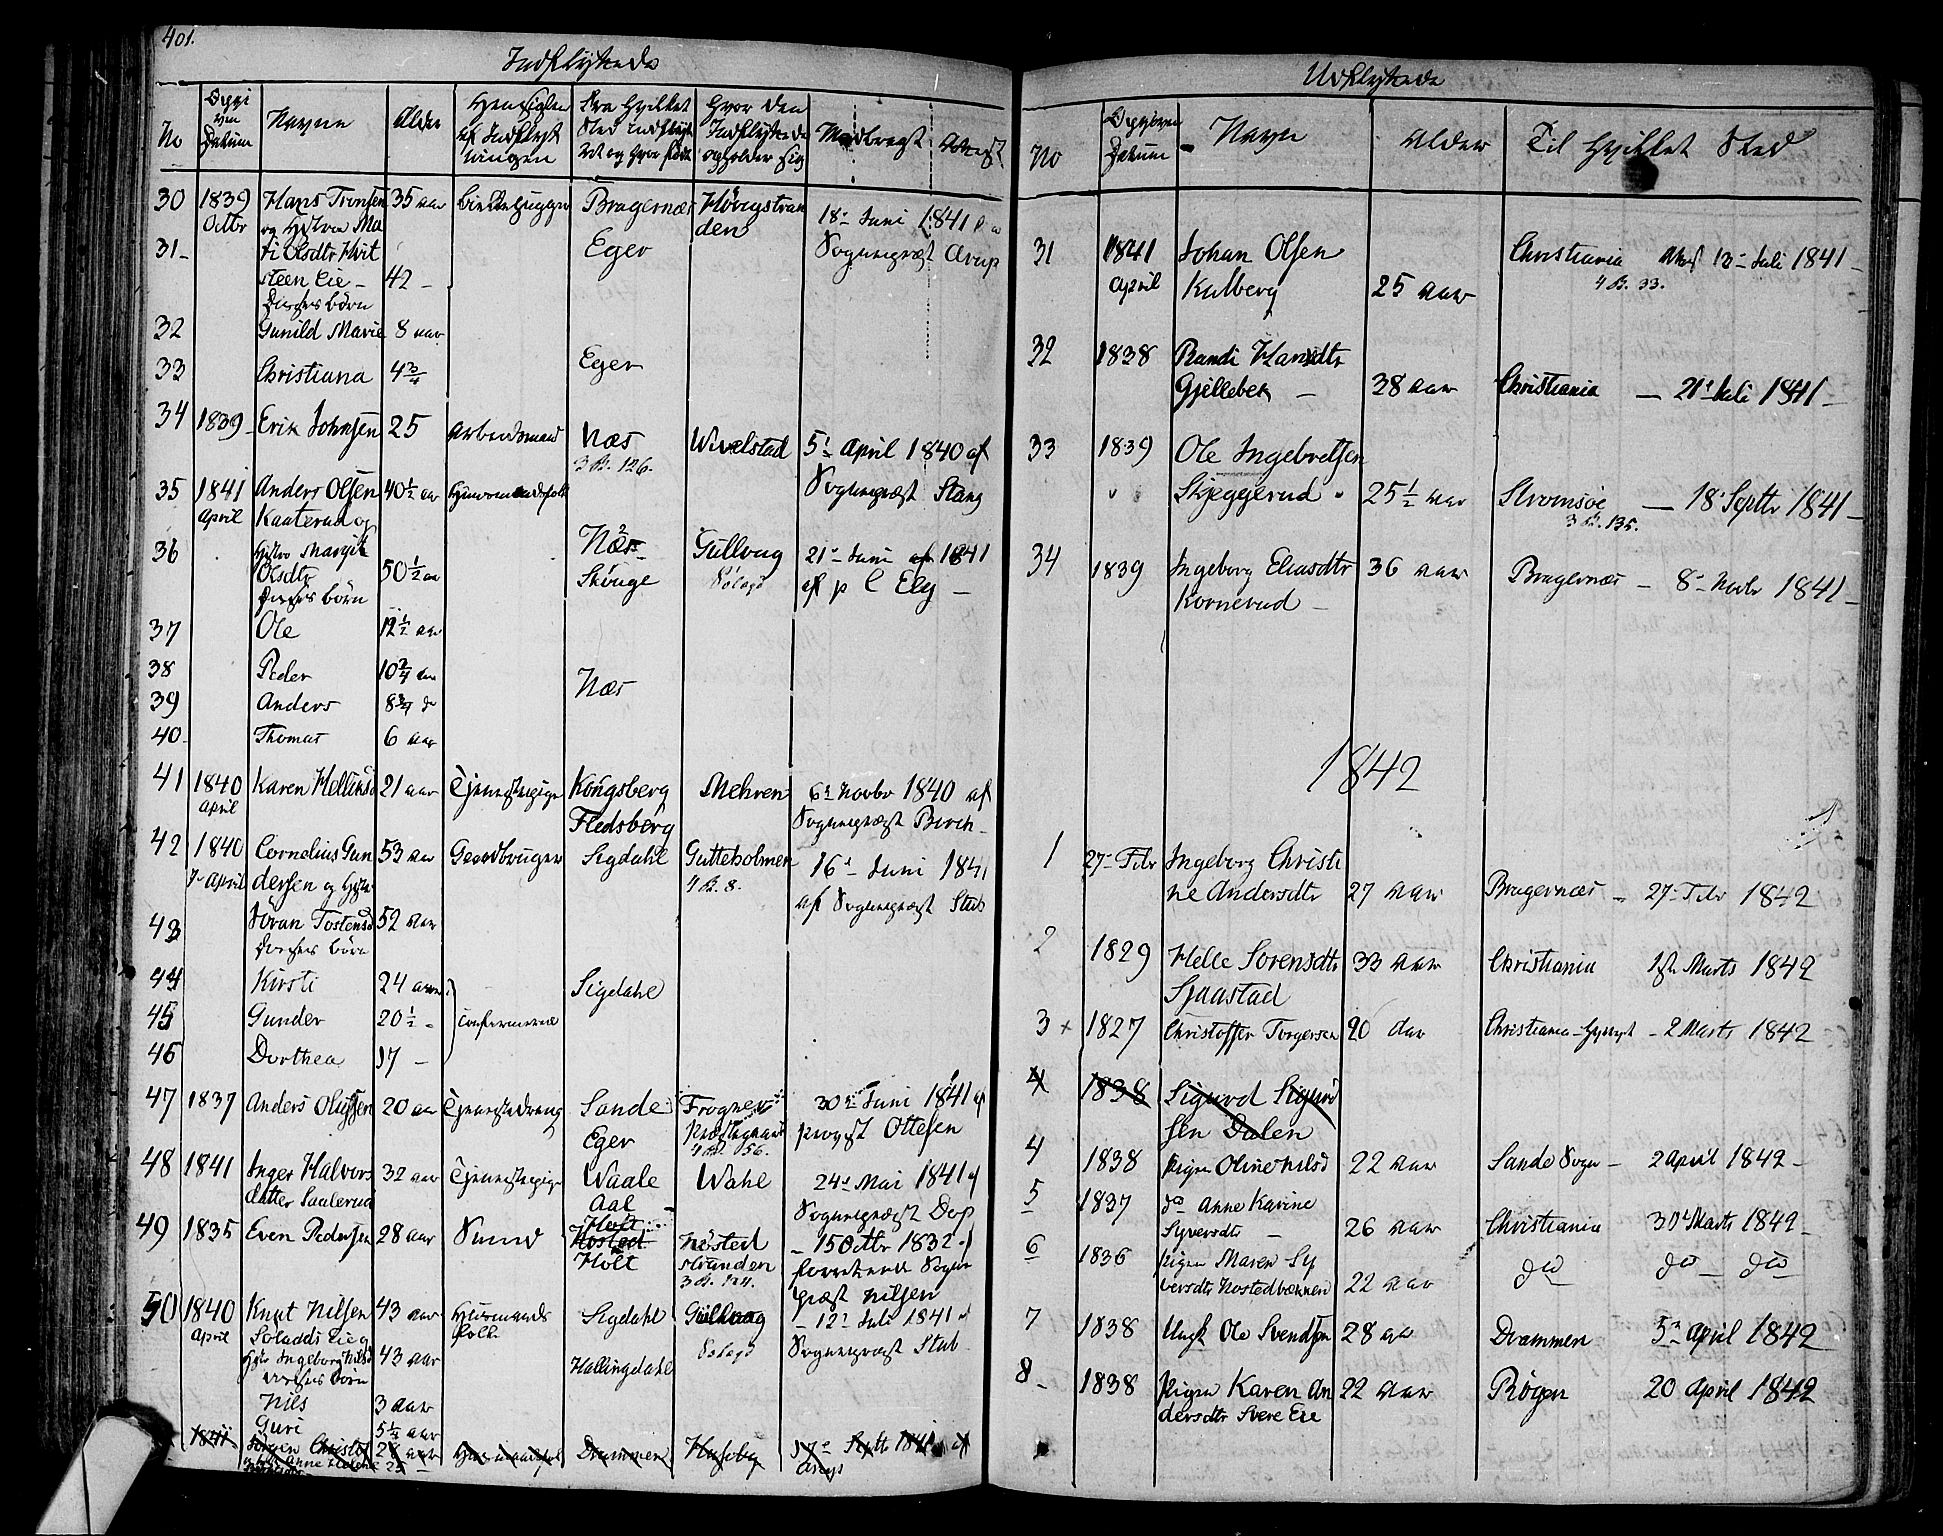 401.
Indflyttede
No
Datum
Navne
Alder
Hensigten
af Indflyt
ningen
Fra hvilket
Sted indflyt
tet og hvor født
Hvor den
Indflyttede
opholder sig
Medbragt Attest
30 1839 Hans Tronsen 35 aar Bragernæs Hövigstran
Octbr og Hustrue Ma den 18de Juni 1841 fra
31 - ri Olsdtr Hvit Eger Sognepræst Arup
steen Eie - 42 -
Disses börn
32 Gunild Marie 8 aar
33 Christiana 4 3/4 Eger
34 1839 - Erik Johnsen 25 Arbeidsmand Næs Wivelstad 5te April 1840 af
3 B. 126. Sognepræst Stang
35 1841 Anders Olsen 40 1/2 aar Huusmandsfolk
April Kaaterud og
36 Hustru Margit Næs Gullaug 21de Juni 1841
Olsdtr 50 1/2 aar Skouge Sölagd af p C Ely -
Disses börn
37 Ole 12 1/2 aar
38 Peder 10 3/4 aar
39 Anders 8 3/4 do Næs
40 - Thomas 6 aar
41 1840 Karen Helliksd 21 aar Tjenestepige Kongsberg Mehren 6te Novbr 1840 af
April Fledsberg Sognepræst Birch -
42 1840 Cornelius Gun 53 aar Gaardbruger Sigdahl Gutteholmen 16de Juni 1841
7de April dersen og Hustr 4 B. 8. af Sognepræst Stub
43 Joran Tostensd 52 aar
Disses börn
44 Kirsti 24 aar
45 Gunder 20 1/2 - Confirmerede Sigdahl
46 Dorthea 17 -
47 1837 Anders Olufsen 20 aar Tjenestedreng Sande Frogner 30te Juni 1841 af
Eger Præstegaard provst Ottesen
4 B. 56.
48 1841 Inger Halvors 32 aar Tjenestepige Waale Wahl 24de Mai 1841 af
datter Saalerud Aal Sognepræst Dop
49 1835 Even Pedersen 28 aar Smed Holt Nösted - 15 Octbr 1832 af
Nosted stranden
Holt 3 B. 124. Sogne
præst Nilsen
50 1840 Knut Nilsen 43 aar Huusmands Sigdahl Gullaug - 12te Juli 1841 af
April Soladds Eie og folk Sölagd Sognepræst Stub
Hstr Ingeborg Nilsd 43 aar Hallingdahl
disses born
Nils 3 aar
Guri 5 1/2 aar
1841 Jörgen Christof 28 aar Huusmandsfol Drammen Husebg 17de Septbr 1841 af
Anne Helene 25 -
Udflyttede
No
Datum
Navn
Alder
Til hvilket Sted
31 1841 Johan Olsen Christiania Attest 13de Juli 1841 -
April Kulberg 25 aar 4 B. 33.
32 1838 Randi Hansdtr
Gjellebek - 38 aar Christiania - 21de Juli 1841 -
33 1839 Ole Ingebretsen
" " Skjeggerud " 25 1/2 aar Stromsöe - 18de Septbr 1841 -
3 B. 135.
34 1839 Ingeborg Eliasdtr 36 aar Bragernæs - 8de Novbr 1841 -
Kornerud -
1842
1 27de Febr Ingeborg Christi
ne Andersdtr 27 aar Bragernæs - 27de Febr 1842
2 1829 Helle Sorensdtr 33 aar Christiania 1ste Marts 1842
Sjaastad
3 + 1827 Christoffer Torgersen 20 aar Christiania - 2 Marts 1842
4 1838 Sigurd Sigurd
sen Dalen
4 1838 pigen Oline Nilsd 22 aar Sande Sogn - 2 April 1842 -
5 1837 do Anne Karine
Syversdtr - 26 aar Christiania 30te Marts 1842 -
6 1836 pigen Maren Sy
versdtr Nostedbækken 22 aar do do - do
7 1838 Ungk Ole Svendsen 28 aar Drammen 5te April 1842
8 - 1838 pigen Karen An 22 aar Rögen 20 April 1842
dersdtr Svere Eie